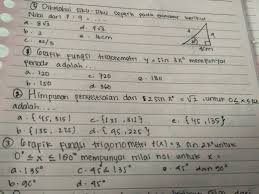 ① Diketahui siku-siku seperti pada gambar berikut
Nilai dari P : q = ....
a. 8√3 d. 4√3
b. 2 e. 16cm
c. 4cm
② Grafik fungsi trigonometri y = sin 3x° mempunyai
periode adalah ....
a. 120 c. 90 e. 180
b. 150 d. 360
③ Himpunan penyelesaian dari 2 sin x° = √2, untuk 0 ≤ x ≤
adalah ...
a. {45, 315} c. {135, 315} e. {45, 135}
b. {135, 225} d. {45, 225}
Grafik fungsi trigonometri f(x) = 3 sin 2x° untuk
0° ≤ x ≤ 180° mempunyai nilai nol untuk x =
a. 135° c. 45° e. 45° dan 90°
b. 90° d. -45°